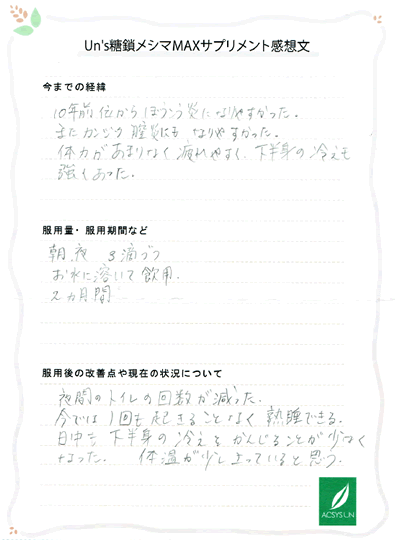 Un's糖鎖メシマMAXサプリメント感想文
今までの経緯
10年前位からぼうこう炎になりやすかった。
またカンジタ膣炎にもなりやすかった。
体力があまりなく疲れやすく、下半身の冷えも
強くあった。
服用量・服用期間など
朝、夜 3滴づつ
お水に溶いて飲用。
2ヵ月間
服用後の改善点や現在の状況について
夜間のトイレの回数が減った。
今では1回も起きることなく熟睡できる。
日中も下半身の冷えをかんじることが少なく
なった。 体温が少し上っていると思う。
ACSYS UN